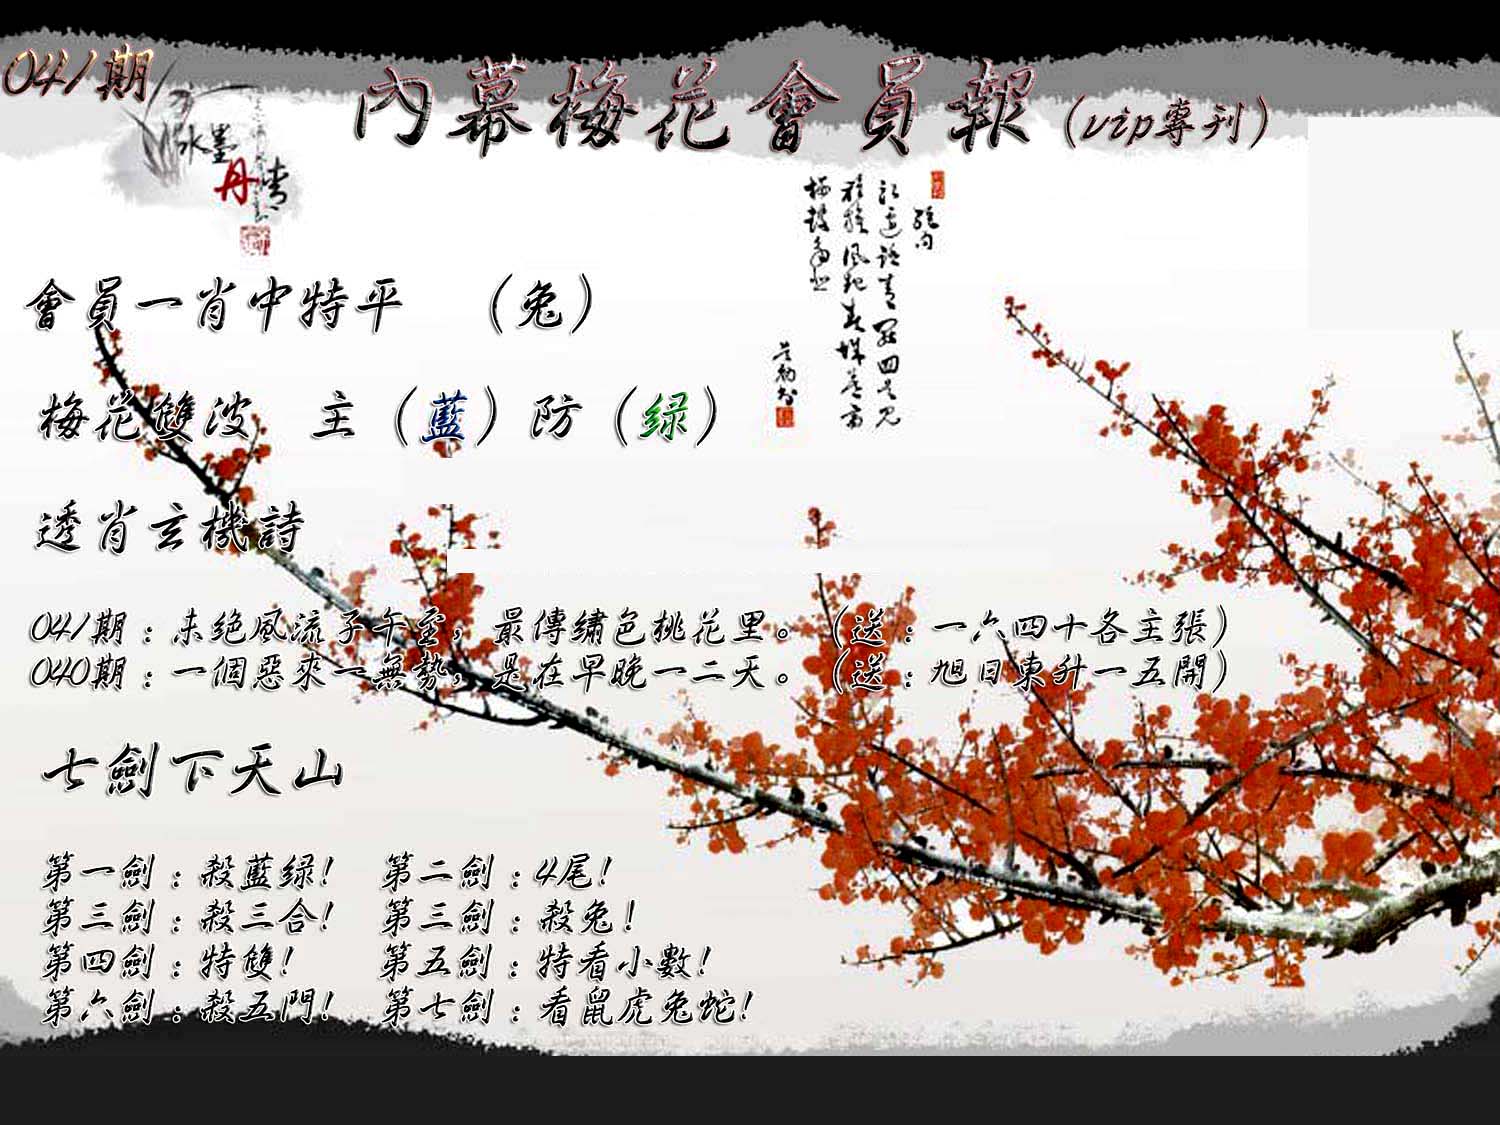 041期
內幕梅花會員報 (vip專刊)
水墨
丹情
會員一肖中特平 (兔)
梅花雙波 主(藍)防(绿)
透肖玄機詩
041期：未绝風流子午至，最傳繡色桃花里。(送：一六四十各主張)
040期：一個惡來一無勢，是在早晚一二天。(送：旭日東升一五開)
七劍下天山
第一劍：殺藍绿! 第二劍：4尾!
第三劍：殺三合! 第三劍：殺兔!
第四劍：特雙! 第五劍：特看小數!
第六劍：殺五門! 第七劍：看鼠虎兔蛇!